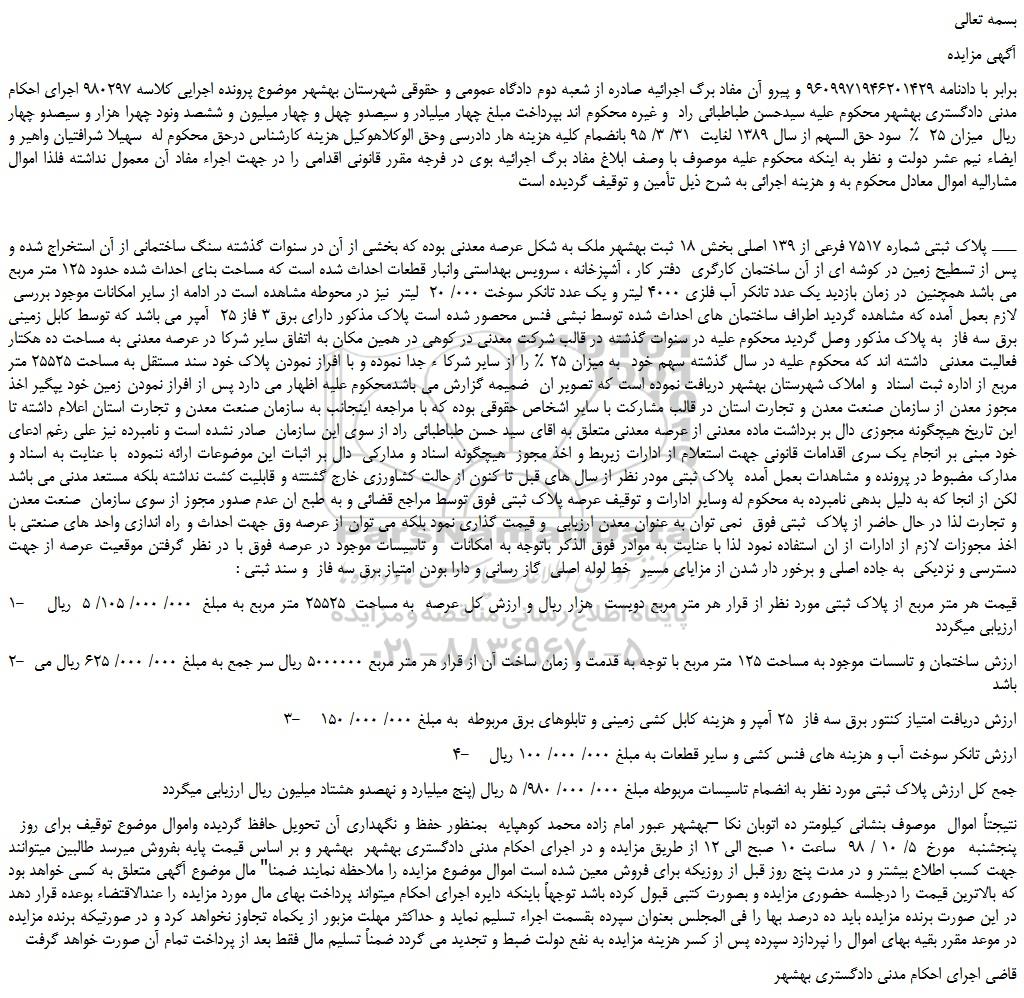 بسمه تعالی
آگهی مزایده
برابر با دادنامه ۹۶۰۹۹۷۱۹۴۶۲۰۱۴۲۹ و پیرو آن مفاد برگ اجرائیه صادره از شعبه دوم دادگاه عمومی و حقوقی شهرستان بهشهر موضوع پرونده اجرایی کلاسه ۹۸۰۲۹۷ اجرای احکام
مدنی دادگستری بهشهر محکوم علیه سیدحسن طباطبائی راد و غیره محکوم اند بپرداخت مبلغ چهار میلیادر و سیصدو چهل و چهار میلیون و ششصد ونود چهرا هزار و سیصدو چهار
ریال میزان ۲۵ ٪ سود حق السهم از سال ۱۳۸۹ لغایت ۳۱/ ۳/ ۹۵ بانضمام کلیه هزینه هار دادرسی وحق الوکلاهوکیل هزینه کارشناس درحق محکوم له سهیلا شرافتیان واهیر و
ایضاء نیم عشر دولت و نظر به اینکه محکوم علیه موصوف با وصف ابلاغ مفاد برگ اجرائیه بوی در فرجه مقرر قانونی اقدامی را در جهت اجراء مفاد آن معمول نداشته فلذا اموال
مشارالیه اموال معادل محکوم به و هزینه اجرائی به شرح ذیل تأمین و توقیف گردیده است
ــــــ پلاک ثبتی شماره ۷۵۱۷ فرعی از ۱۳۹ اصلی بخش ۱۸ ثبت بهشهر ملک به شکل عرصه معدنی بوده که بخشی از آن در سنوات گذشته سنگ ساختمانی از آن استخراج شده و
پس از تسطیح زمین در کوشه ای از آن ساختمان کارگری دفتر کار ، آشپزخانه ، سرویس بهداستی وانبار قطعات احداث شده است که مساحت بنای احداث شده حدود ۱۲۵ متر مربع
می باشد همچنین در زمان بازدید یک عدد تانکر آب فلزی ۴۰۰۰ لیتر و یک عدد تانکر سوخت ۰۰۰/ ۲۰ لیتر نیز در محوطه مشاهده است در ادامه از سایر امکانات موجود بررسی
لازم بعمل آمده که مشاهده گردید اطراف ساختمان های احداث شده توسط نبشی فنس محصور شده است پلاک مذکور دارای برق ۳ فاز ۲۵ آمپر می باشد که توسط کابل زمینی
برق سه فاز به پلاک مذکور وصل گردید محکوم علیه در سنوات گذشته در قالب شرکت معدنی در کوهی در همین مکان به اتفاق سایر شرکا در عرصه معدنی به مساحت ده هکتار
فعالیت معدنی داشته اند که محکوم علیه در سال گذشته سهم خود به میزان ۲۵ ٪ را از سایر شرکا ء جدا نموده و با افراز نمودن پلاک خود سند مستقل به مساحت ۲۵۵۲۵ متر
مربع از اداره ثبت اسناد و املاک شهرستان بهشهر دریافت نموده است که تصویر ان ضمیمه گزارش می باشدمحکوم علیه اظهار می دارد پس از افراز نمودن زمین خود پیگیر اخذ
مجوز معدن از سازمان صنعت معدن و تجارت استان در قالب مشارکت با سایر اشخاص حقوقی بوده که با مراجعه اینجانب به سازمان صنعت معدن و تجارت استان اعلام داشته تا
این تاریخ هیچگونه مجوزی دال بر برداشت ماده معدنی از عرصه معدنی متعلق به اقای سید حسن طباطبائی راد از سوی این سازمان صادر نشده است و نامبرده نیز علی رغم ادعای
خود مبنی بر انجام یک سری اقدامات قانونی جهت استعلام از ادارات زیربط و اخذ مجوز هیچگونه اسناد و مدارکی دال بر اثبات این موضوعات ارائه ننموده با عنایت به اسناد و
مدارک مضبوط در پرونده و مشاهدات بعمل آمده پلاک ثبتی مودر نظر از سال های قبل تا کنون از حالت کشاورزی خارج گشتته و قابلیت کشت نداشته بلکه مستعد مدنی می باشد
لکن از انجا که به دلیل بدهی نامبرده به محکوم له وسایر ادارات و توقیف عرصه پلاک ثبتی فوق توسط مراجع قضائی و به طبع ان عدم صدور مجوز از سوی سازمان صنعت معدن
و تجارت لذا در حال حاضر از پلاک ثبتی فوق نمی توان به عنوان معدن ارزیابی و قیمت گذاری نمود بلکه می توان از عرصه وق جهت احداث و راه اندازی واحد های صنعتی با
اخذ مجوزات لازم از ادارات از ان استفاده نمود لذا با عنایت به موادر فوق الذکر باتوجه به امکانات و تاسیسات موجود در عرصه فوق با در نظر گرفتن موقعیت عرصه از جهت
دسترسی و نزدیکی به جاده اصلی و برخور دار شدن از مزایای مسیر خط لوله اصلی گاز رسانی و دارا بودن امتیاز برق سه فاز و سند ثبتی :
قیمت هر متر مربع از پلاک ثبتی مورد نظر از قرار هر متر مربع دویست هزار ریال و ارزش کل عرصه به مساحت ۲۵۵۲۵ متر مربع به مبلغ ۰۰۰/ ۰۰۰/ ۱۰۵/ ۵ ریال ۱-
ارزیابی میگردد
ارزش ساختمان و تاسسات موجود به مساحت ۱۲۵ متر مربع با توجه به قدمت و زمان ساخت آن از قرار هر متر مربع ۵۰۰۰۰۰۰ ریال سر جمع به مبلغ ۰۰۰/ ۰۰۰/ ۶۲۵ ریال می ۲-
باشد
ارزش دریافت امتیاز کنتور برق سه فاز ۲۵ آمپر و هزینه کابل کشی زمینی و تابلوهای برق مربوطه به مبلغ ۰۰۰/ ۰۰۰/ ۱۵۰ ۳-
ارزش تانکر سوخت آب و هزینه های فنس کشی و سایر قطعات به مبلغ ۰۰۰/ ۰۰۰/ ۱۰۰ ریال ۴-
جمع کل ارزش پلاک ثبتی مورد نظر به انضمام تاسیسات مربوطه مبلغ ۰۰۰/ ۰۰۰/ ۹۸۰/ ۵ ریال (پنج میلیارد و نهصدو هشتاد میلیون ریال ارزیابی میگردد
نتیجتاً اموال موصوف بنشانی کیلومتر ده اتوبان نکا –بهشهر عبور امام زاده محمد کوهپایه بمنظور حفظ و نگهداری آن تحویل حافظ گردیده واموال موضوع توقیف برای روز
پنجشنبه مورخ ۵/ ۱۰ / ۹۸ ساعت ۱۰ صبح الی ۱۲ از طریق مزایده و در اجرای احکام مدنی دادگستری بهشهر بهشهر و بر اساس قیمت پایه بفروش میرسد طالبین میتوانند
جهت کسب اطلاع بیشتر و در مدت پنج روز قبل از روزیکه برای فروش معین شده است اموال موضوع مزایده را ملاحظه نمایند ضمنا" مال موضوع آگهی متعلق به کسی خواهد بود
که بالاترین قیمت را درجلسه حضوری مزایده و بصورت کتبی قبول کرده باشد توجهاً باینکه دایره اجرای احکام میتواند پرداخت بهای مال مورد مزایده را عندالاقتضاء بوعده قرار دهد
در این صورت برنده مزایده باید ده درصد بها را فی المجلس بعنوان سپرده بقسمت اجراء تسلیم نماید و حداکثر مهلت مزبور از یکماه تجاوز نخواهد کرد و در صورتیکه برنده مزایده
در موعد مقرر بقیه بهای اموال را نپردازد سپرده پس از کسر هزینه مزایده به نفع دولت ضبط و تجدید می گردد ضمناً تسلیم مال فقط بعد از پرداخت تمام آن صورت خواهد گرفت
قاضی اجرای احکام مدنی دادگستری بهشهر
ParsNamadData
پایگاه اطلاع رسانی مناقصه و مزایده
۰۲۱-۸۸۳۴۹۶۷۰-۵